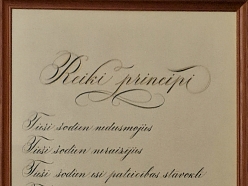 Reiki principi
Tieši šodien nedusmojies
Tieši šodien neraizējies
Tieši šodien esi pateicības stāvoklī